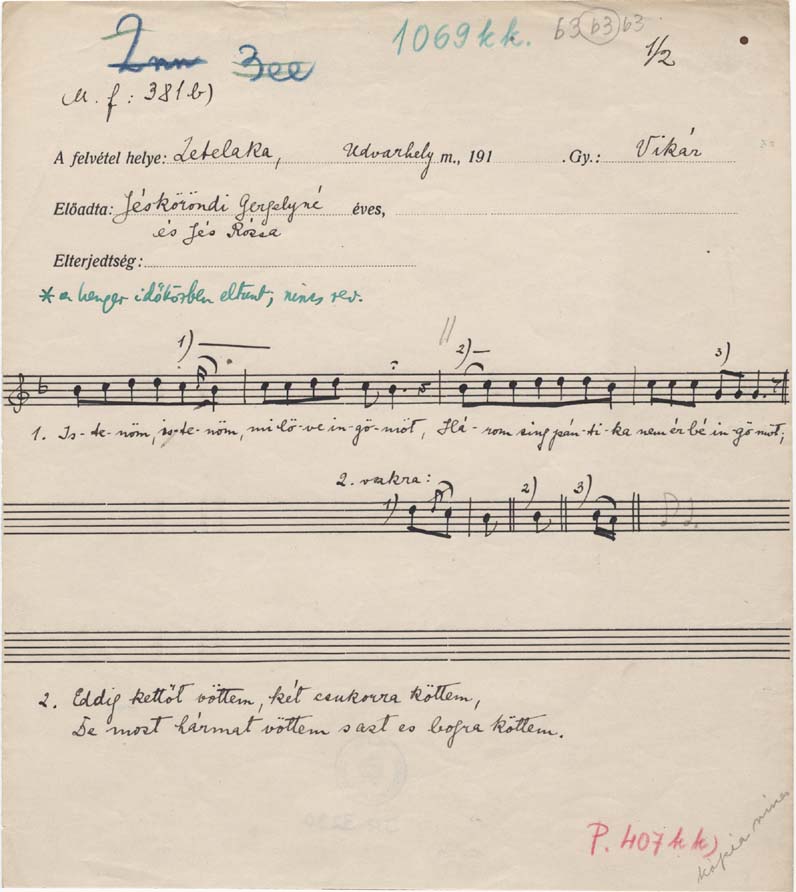 2nn 3ee 1069 kk. b3 b3 b3
1/2
M. f: 381b)
A felvétel helye: Zetelaka, Udvarhely m., 191 .Gy.: Vikár
Előadta: Jésköröndi Gergelyné éves,
és Jés Rózsa
Elterjedtség:
* a henger időközben eltünt; nincs rev.
1) 2) 3)
1. Is-te-nöm, is-te-nöm, mi lö-ve in-gö-möt, Há-rom sing pán-ti-ka nem ér bé in-gö-möt;
2. vszkra:
1) 2) 3)
2. Eddig kettőt vöttem, két csukorra köttem,
De most hármat vöttem s azt es bogra köttem.
P. 407 kk)
kópia nincs